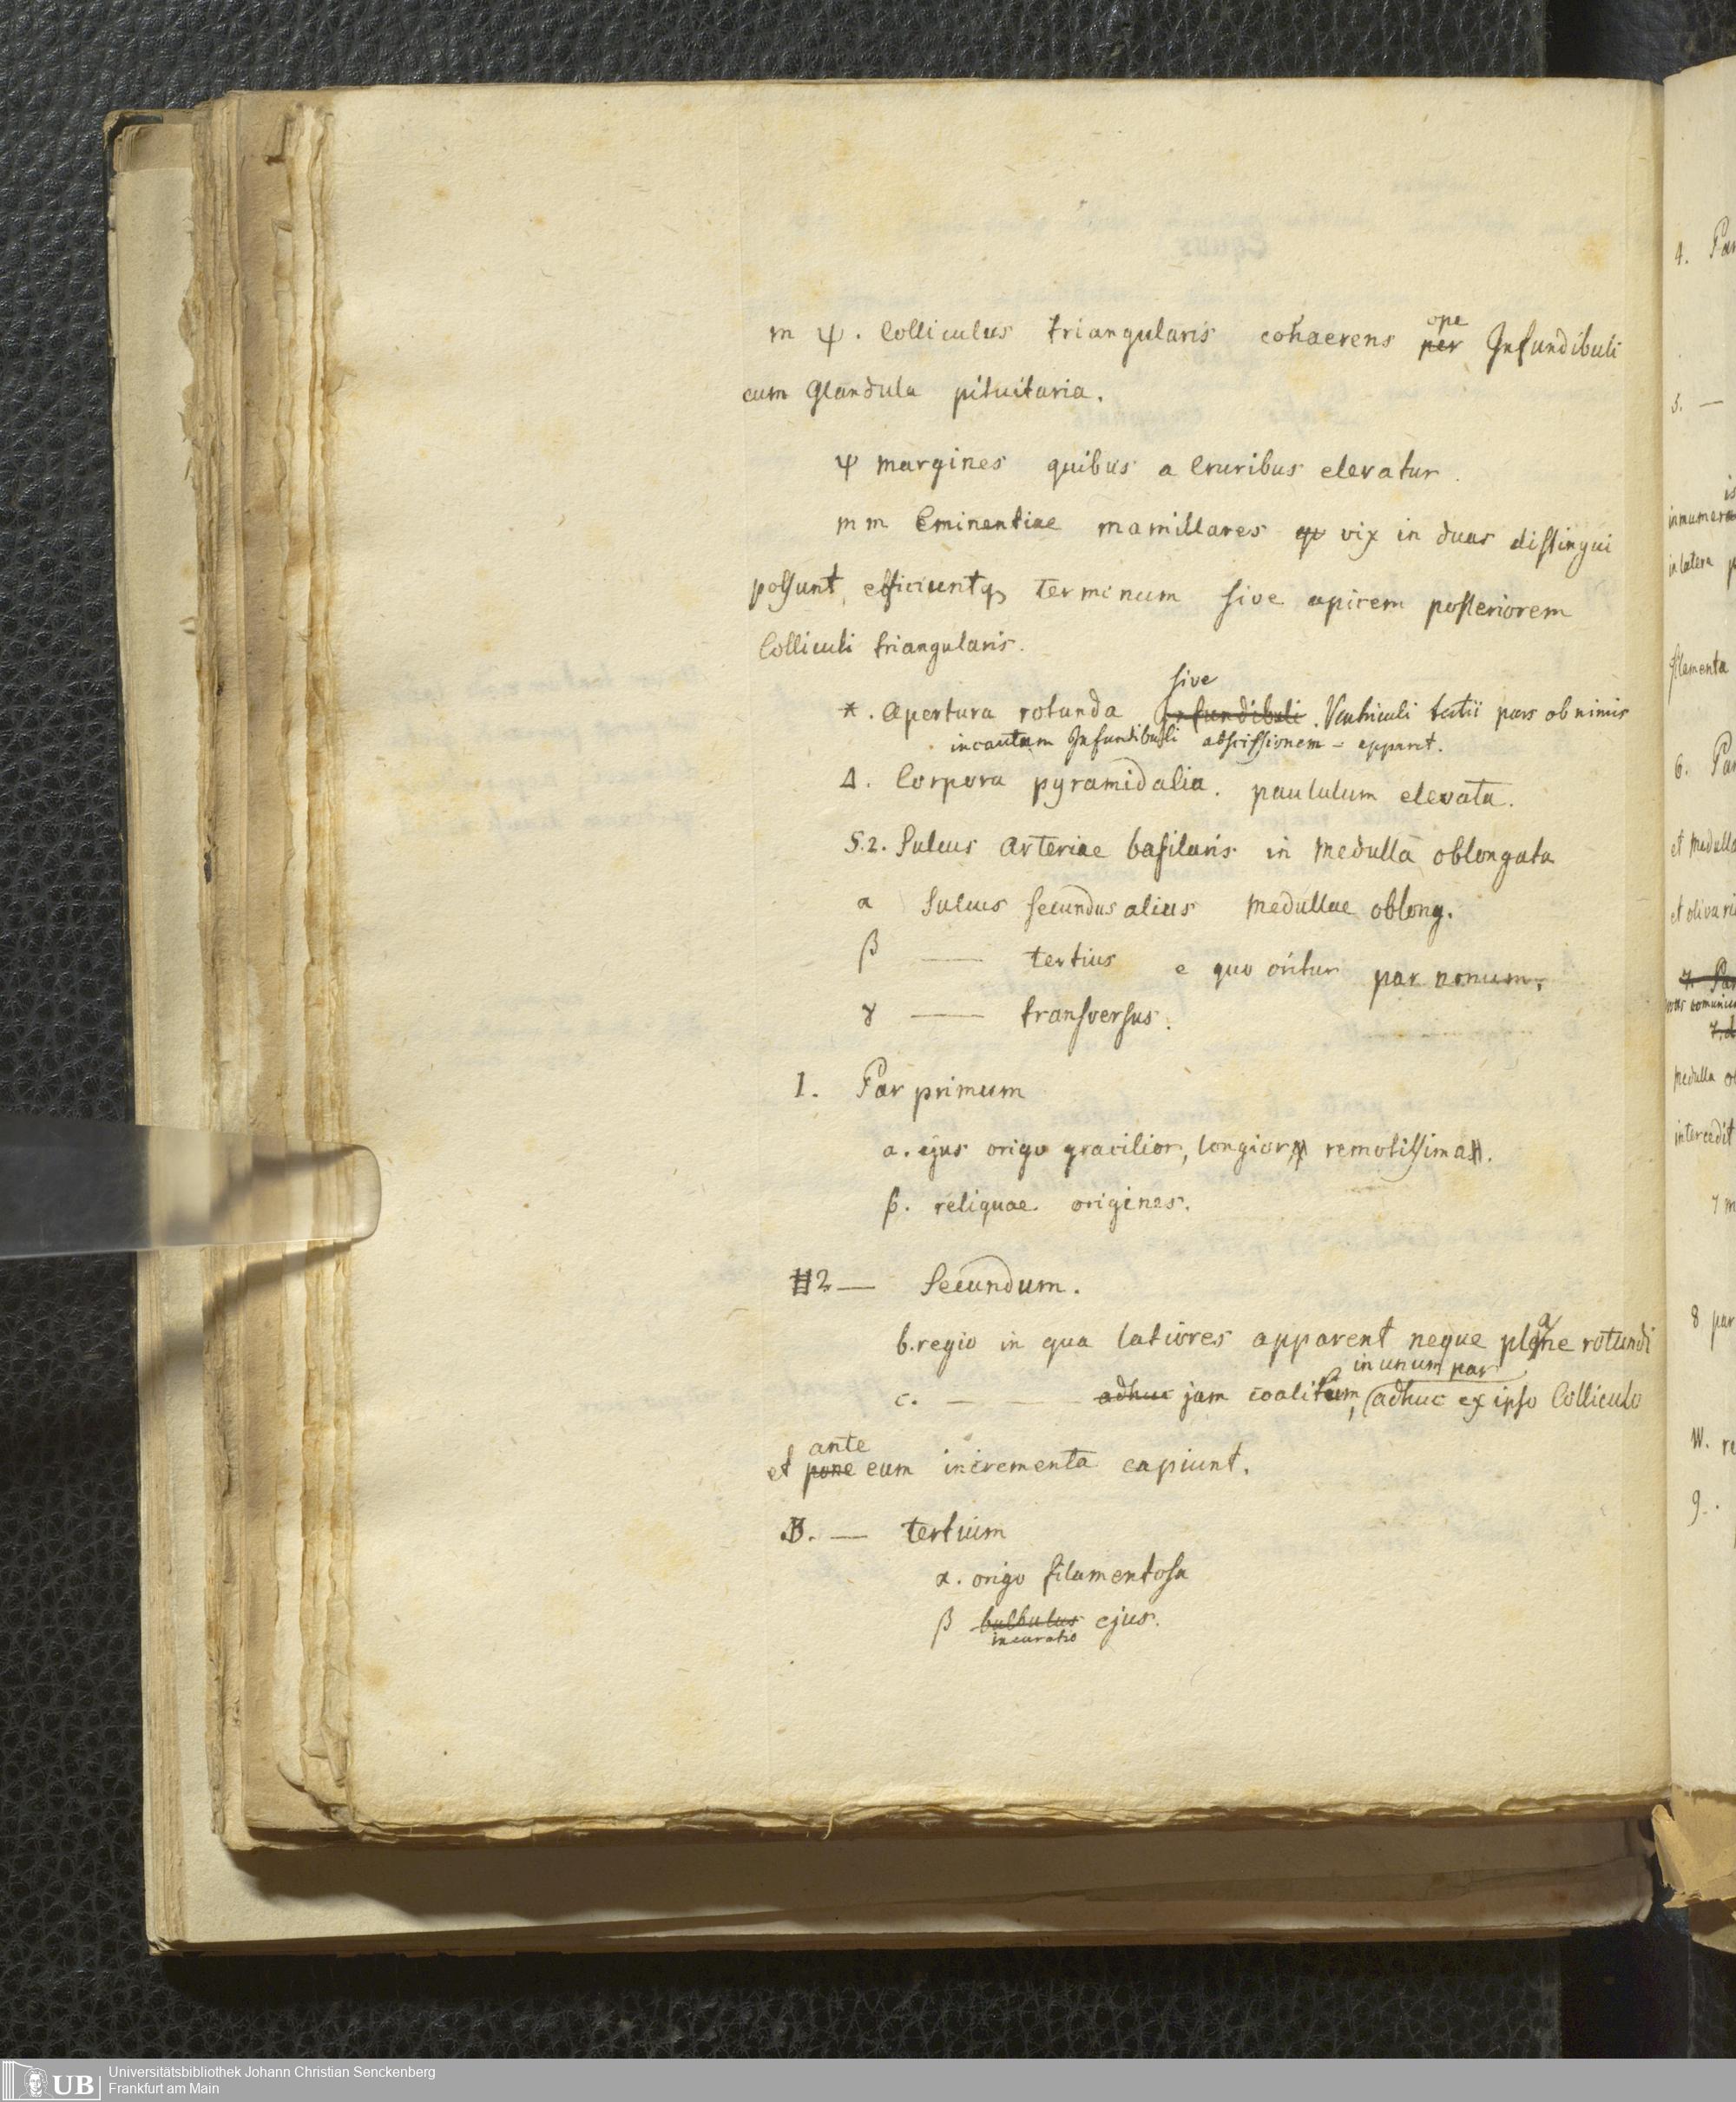 m ψ. Colliculus triangularis cohaerens per ope Infundibuli
cum Glandula pituitaria.
ψ margines quibus a Cruribus elevatur.
m m Eminentiae mamillares qu vix in duas distingui
possunt, efficiuntq; terminum sive apicem posteriorem
Colliculi triangularis.
sive
*. Apertura rotunda Infundibuli. Ventriculi tertii pars ob nimis
incautam Infundibuli abscissionem – apparet.
Δ. Corpora pyramidalia. paululum elevata.
S.2. Sulcus Arteriae basilaris in Medulla oblongata
α Sulcus secundus alius Medullae oblong.
β —— tertius e quo oritur par nonum.
γ —— transversus.
1. Par primum
a. ejus origo gracilior, longior, remotissima.
β. reliquae origines.
2 — Secundum.
b. regio in qua latiores apparent neque plane rotundi
in unum par
c. — —— adhuc jam coalitum, adhuc ex ipso Colliculo
ante
et pone eum incrementa capiunt.
3. — tertium
α. origo filamentosa
β bulbulus ejus.
incuratio
4. Par
5. —
is
innumera
in latera p
filamenta
6. Par
et Medulla
et olivari
7. Par
Medulla o
intercedit
7 m
8 par
W. re
9. .
UB
Universitätsbibliothek Johann Christian Senckenberg
Frankfurt am Main